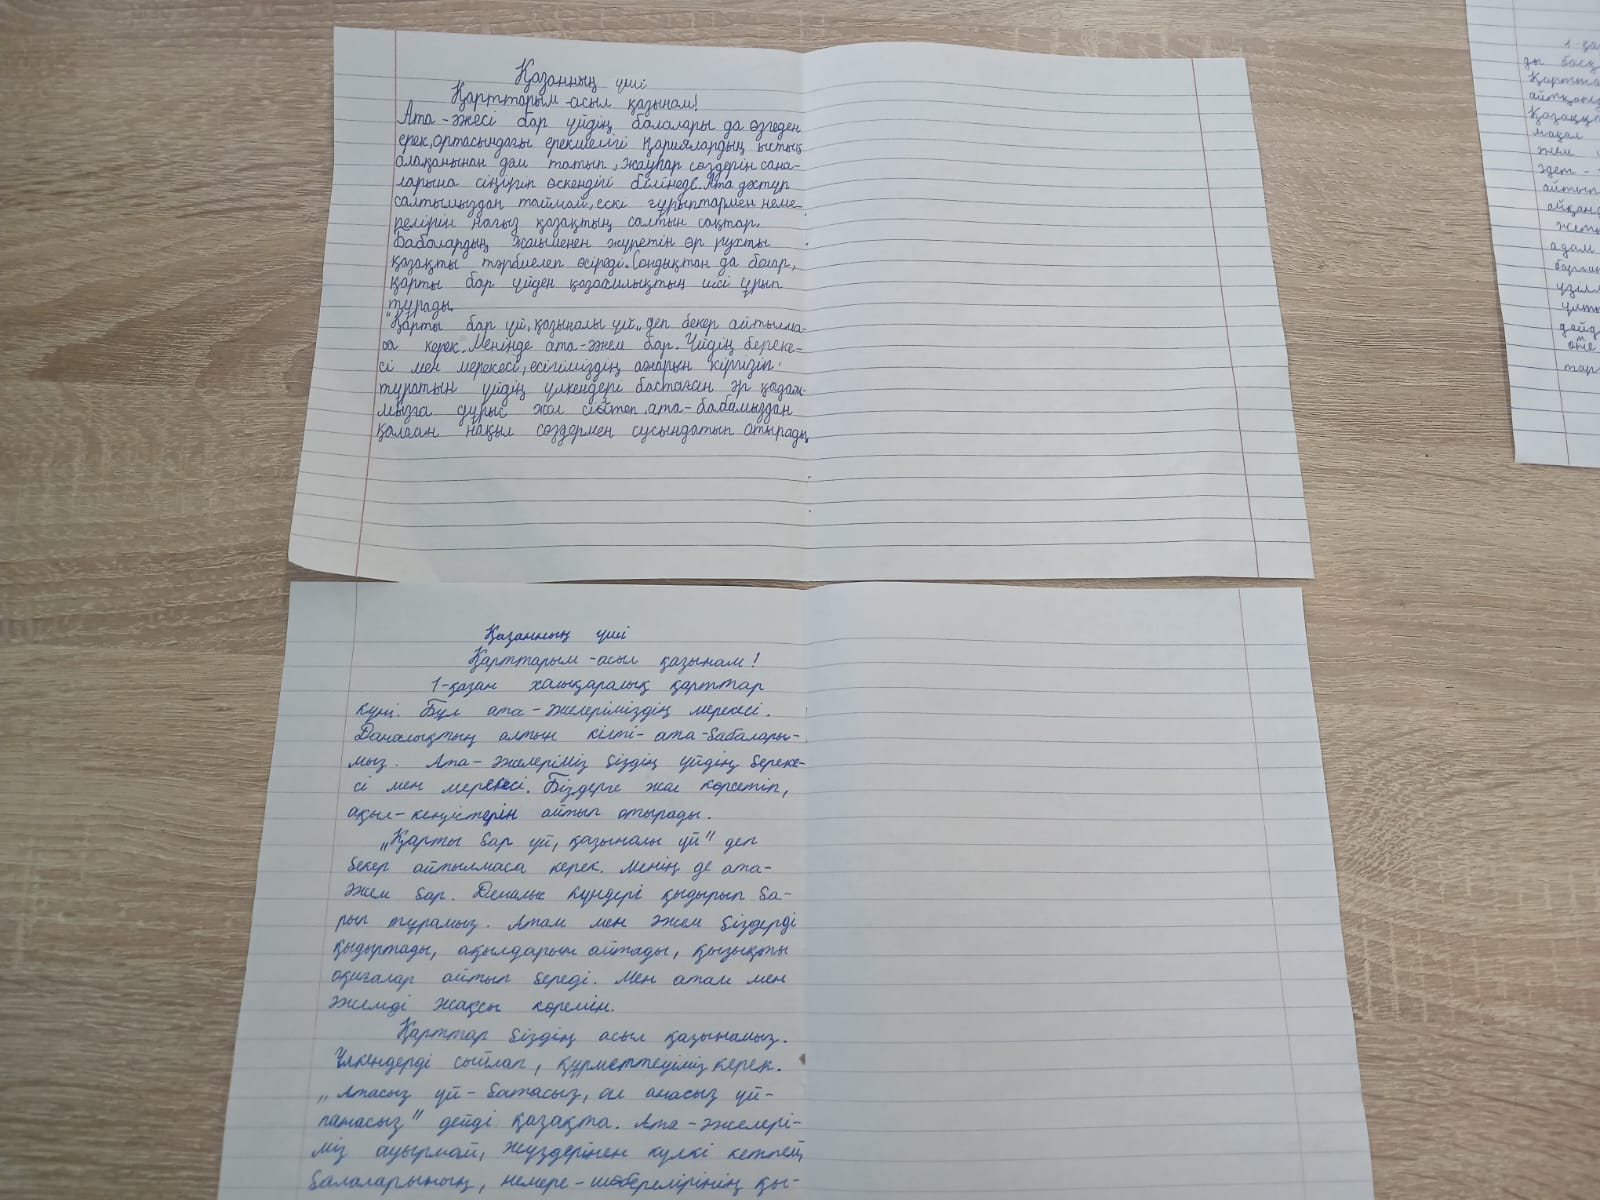 Қазанның үші
Қарттарым-асыл қазынам!
Ата-әжесі бар үйдің балалары да өзгеден
ерек, ортасындағы ерекшелігі қариялардың ыстық
алақанынан дәм татып, жауһар сөздерін сана-
ларына сіңіріп өскендігі білінеді. Ата дәстүр
салтымыздан таймай, ескі ғұрыптармен неме-
релірін нағыз қазақтың салтын сақтар.
Бабалардың жолыменен жүретін өр рухты
қазақты тәрбиелеп өсіреді. Сондықтан да болар,
қарты бар үйден қазақылықтың иісі ұрып
тұрады.
"Қарты бар үй, қазыналы үй" деп бекер айтылма-
са керек. Менінде ата-әжем бар. Үйдің береке-
сі мен мерекесі, есігіміздің ажарын кіргізіп
тұратын үйдің үлкендері бастаған әр қадам-
мызға дұрыс жол сілтеп, ата-бабамыздан
қалған нақыл сөздермен сусындатып отырады.
Қазанның үші
Қарттарым-асыл қазынам!
1-қазан халықаралық қарттар
күні. Бұл ата-әжелеріміздің мерекесі.
Даналықтың алтын кілті- ата-бабалары-
мыз. Ата-әжелеріміз біздің үйдің береке-
сі мен мерекесі. Біздерге жол көрсетіп,
ақыл-кеңістерін айтып отырады.
„Қарты бар үй, қазыналы үй" деп
бекер айтылмаса керек. Менің де ата-
әжем бар. Демалыс күндері қыдырып ба-
рып тұрамыз. Атам мен әжем біздерді
қыдыртады, ақылдарын айтады, қызықты
оқиғалар айтып береді. Мен атам мен
әжемді жақсы көремін.
Қарттар біздің асыл қазынамыз.
Үлкендерді сыйлап, құрметтеуіміз керек.
„Атасыз үй- батасыз, ал анасыз үй-
панасыз" дейді қазақта. Ата-әжелері-
міз ауырмай, жүздерінен күлкі кетпей,
балаларының, немере-шөберелірінің қы-
1-қа
ды
Қартта
айтқан
Қазақт
мақал
жем
әдет-
айтып
адам
тар